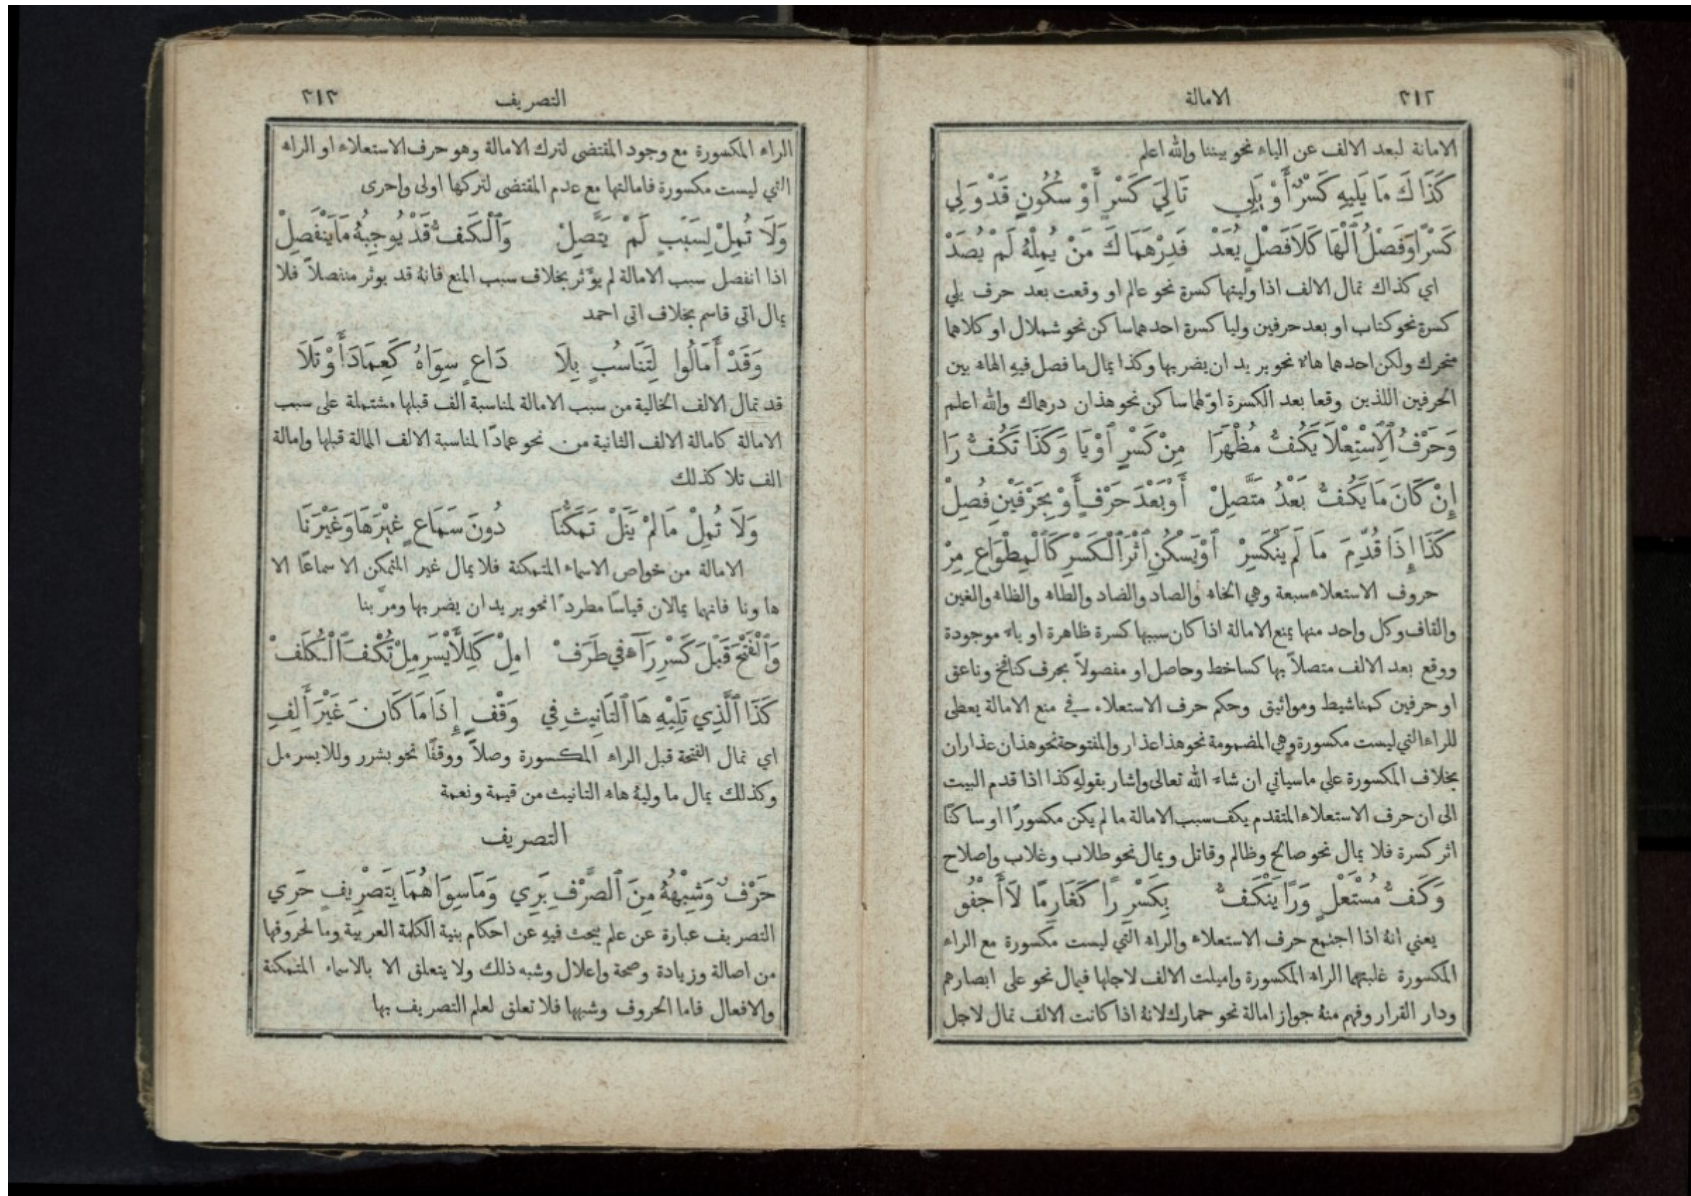 ٣١٢
الامالة
الامانة لبعد الالف عن الياء نحو بيننا والله اعلم
كَذَاكَ مَا يَلِيهِ كَسْرٌ أَوْ يَلِي تَالِيَ كَسْرٍ أَوْ سُكُونٍ قَدْ وَلِي
كَسْرًا وَفَصْلُ ٱلْهَا كَلَا فَصْلٍ يُعَدْ فَدِرْهَمَاكَ مَنْ يُمِلْهُ لَمْ يُصَدْ
اي كذاك تمال الالف اذا وليتها كسرة نحو عالم او وقعت بعد حرف يلي
كسرة نحو كتاب او بعد حرفين وليا كسرة احدهما ساكن نحو شملال او كلاهما
متحرك ولكن احدهما هاء نحو يريد ان يضربها وكذا يمال ما فصل فيه الهاء بين
الحرفين اللذين وقعا بعد الكسرة اوّلهما ساكن نحو هذان درهماك والله اعلم
وَحَرْفُ ٱلِاسْتِعْلَا يَكُفُّ مُظْهَرَا مِنْ كَسْرٍ اَوْ يَا وَكَذَا تَكُفُّ رَا
إِنْ كَانَ مَا يَكُفُّ بَعْدُ مُتَّصِلْ أَوْ بَعْدَ حَرْفٍ أَوْ بِحَرْفَيْنِ فُصِلْ
كَذَا إِذَا قُدِّمَ مَا لَمْ يَنْكَسِرْ اَوْ يَسْكُنِ اثْرَ ٱلْكَسْرِ كَٱلْمِطْوَاعِ مِرْ
حروف الاستعلاء سبعة وهي الخاء والصاد والضاد والطاء والظاء والغين
والقاف وكل واحد منها يمنع الامالة اذا كان سببها كسرة ظاهرة او ياء موجودة
ووقع بعد الالف متصلاً بها كساخط وحاصل او مفصولاً بحرف كنافخ وناعق
او حرفين كمناشيط ومواثيق وحكم حرف الاستعلاء في منع الامالة يعطى
للراء التي ليست مكسورة وهي المضمومة نحو هذا عذار والمفتوحة نحو هذان عذاران
بخلاف المكسورة على ما سياتي ان شاء الله تعالى واشار بقوله كذا اذا قدم البيت
الى ان حرف الاستعلاء المتقدم يكف سبب الامالة ما لم يكن مكسورًا او ساكنًا
اثر كسرة فلا يمال نحو صالح وظالم وقاتل ويمال نحو طلاب وغلاب واصلاح
وَكَفُّ مُسْتَعْلٍ وَرًا يَنْكَفُّ بِكَسْرِ رًا كَغَارِمًا لَا أَجْفُو
يعني انه اذا اجتمع حرف الاستعلاء والراء التي ليست مكسورة مع الراء
المكسورة غلبتهما الراء المكسورة واميلت الالف لاجلها فيمال نحو على ابصارهم
ودار القرار وفهم منه جواز امالة نحو حمارك لانه اذا كانت الالف تمال لاجل
التصريف
٣١٣
الراء المكسورة مع وجود المقتضى لترك الامالة وهو حرف الاستعلاء او الراء
التي ليست مكسورة فامالتها مع عدم المقتضى لتركها اولى واحرى
وَلَا تُمِلْ لِسَبَبٍ لَمْ يَتَّصِلْ وَٱلْكَفُّ قَدْ يُوجِبُهُ مَا يَنْفَصِلْ
اذا انفصل سبب الامالة لم يؤثر بخلاف سبب المنع فانه قد يوثر منفصلاً فلا
يمال اتى قاسم بخلاف اتى احمد
وَقَدْ أَمَالُوا لِتَنَاسُبٍ بِلَا دَاعٍ سِوَاهُ كَعِمَادَا أَوْ تَلَا
قد تمال الالف الخالية من سبب الامالة لمناسبة الف قبلها مشتملة على سبب
الامالة كامالة الالف الثانية من نحو عمادًا لمناسبة الالف الممالة قبلها وامالة
الف تلا كذلك
وَلَا تُمِلْ مَا لَمْ يَنَلْ تَمَكُّنَا دُونَ سَمَاعٍ غَيْرَ هَا وَغَيْرَ نَا
الامالة من خواص الاسماء المتمكنة فلا يمال غير المتمكن الا سماعًا الا
ها ونا فانهما يمالان قياسًا مطردًا نحو يريد ان يضربها ومرّ بنا
وَٱلْفَتْحَ قَبْلَ كَسْرِ رَاءٍ فِي طَرَفْ امِلْ كَلِلْأَيْسَرِ مِلْ تُكْفَ ٱلْكُلَفْ
كَذَا ٱلَّذِي تَلِيْهِ هَا ٱلتَّانِيثِ فِي وَقْفٍ إِذَا مَا كَانَ غَيْرَ أَلِفِ
اي تمال الفتحة قبل الراء المكسورة وصلاً ووقفًا نحو بشرر وللايسر مل
وكذلك يمال ما وليهُ هاء التانيث من قيمة ونعمة
التصريف
حَرْفٌ وَشِبْهُهُ مِنَ ٱلصَّرْفِ بَرِي وَمَا سِوَاهُمَا بِتَصْرِيفٍ حَرِي
التصريف عبارة عن علم يبحث فيه عن احكام بنية الكلمة العربية وما لحروفها
من اصالة وزيادة وصحة واعلال وشبه ذلك ولا يتعلق الا بالاسماء المتمكنة
والافعال فاما الحروف وشبهها فلا تعلق لعلم التصريف بها